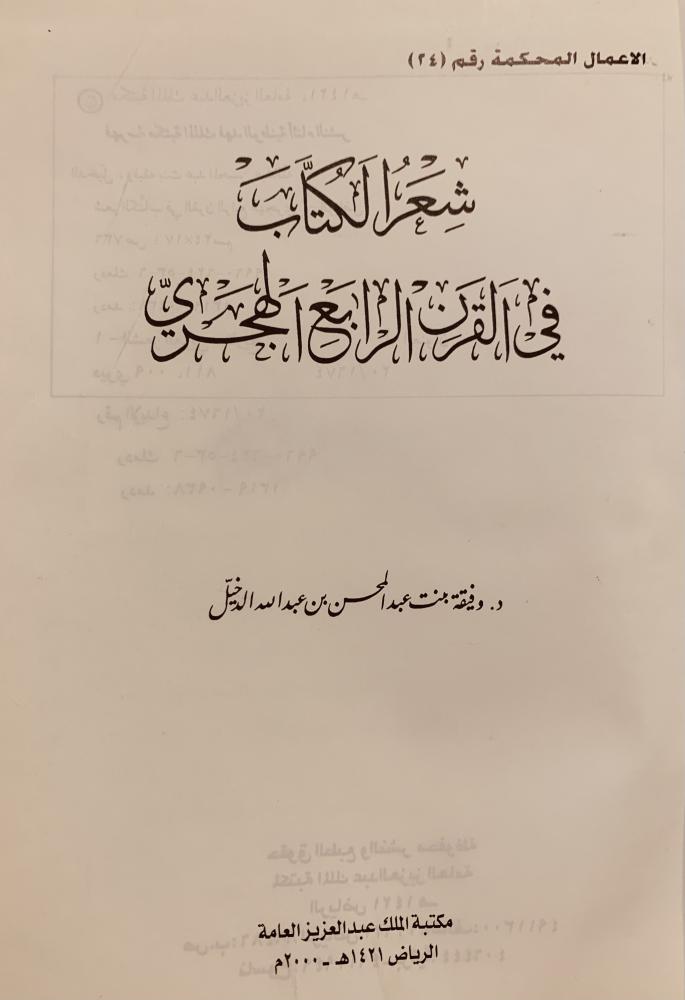 الاعمال المحكمة رقم (٢٤)
شِعَرُ الكُتَّاب
في القرن الرابع الهجريّ
د. وفيقة بنت عبد المحسن بن عبد الله الدخيّل
مكتبة الملك عبدالعزيز العامة
الرياض ١٤٢١هـ ـ ٢٠٠٠م